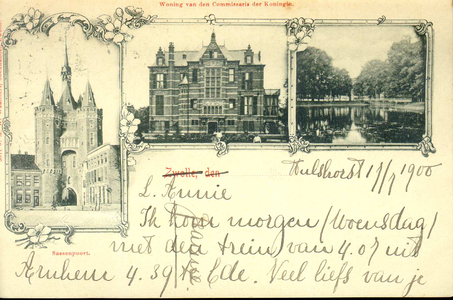 Woning van den Commissaris der Koningin.
Sassenpoort.
Zwolle, den
Hulshorst 17/7 1900
L. Annie
Ik kom morgen (Woensdag)
met den trein van 4.07 uit
Arnhem 4.39 te Ede. Veel liefs van je